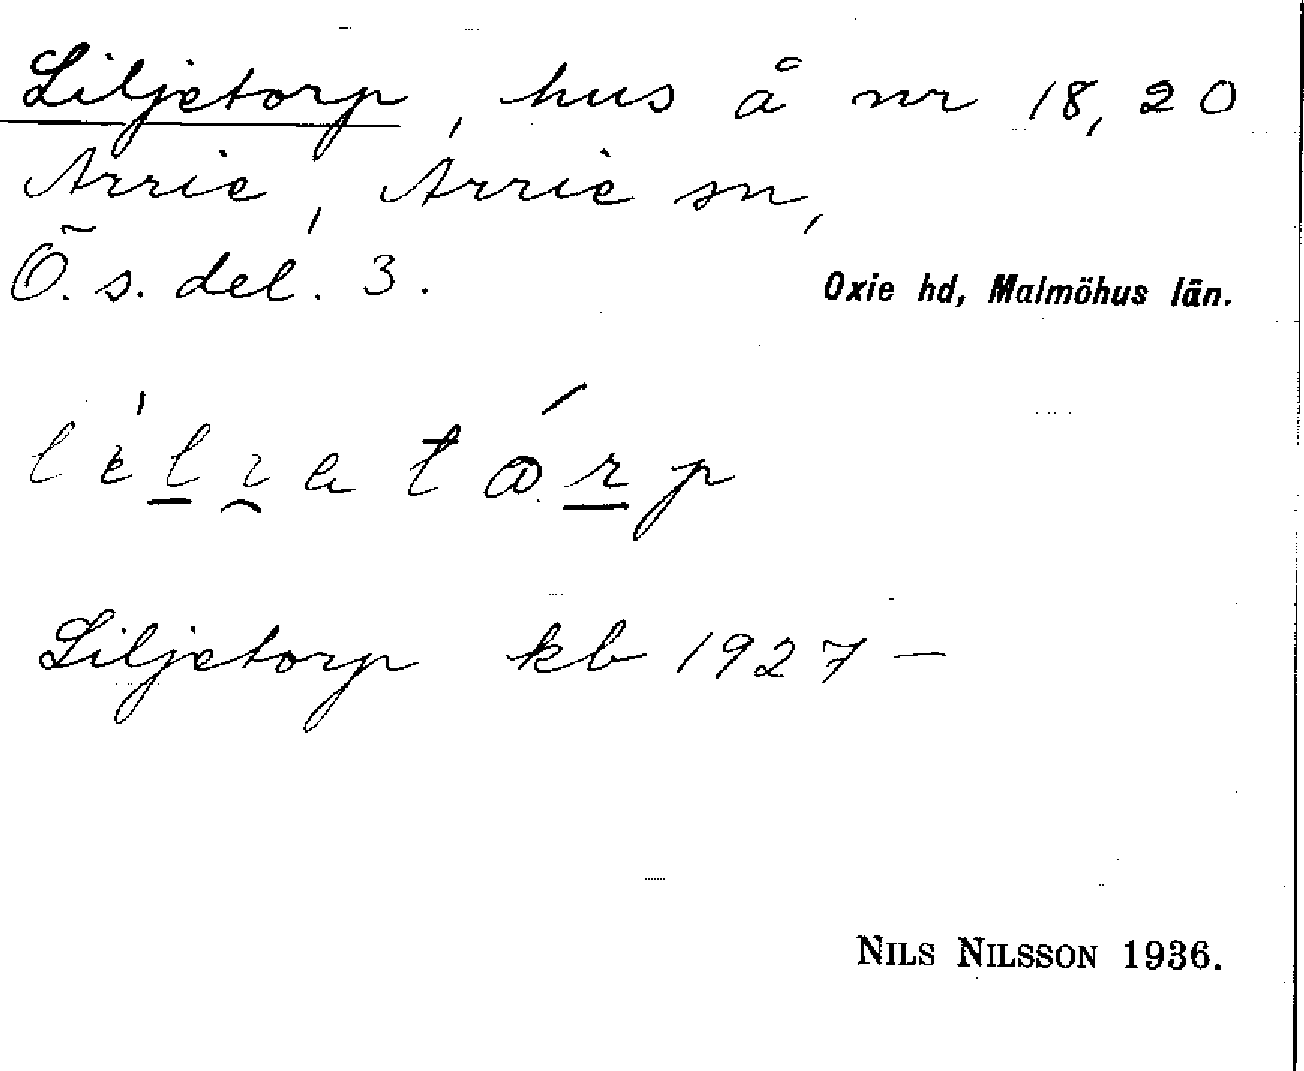 Liljetorp, hus å nr 18, 20
Arrie, Arrie sn,
Ö. s. del. 3.
Oxie hd, Malmöhus län.
Liljetorp kb 1927 —
NILS NILSSON 1936.